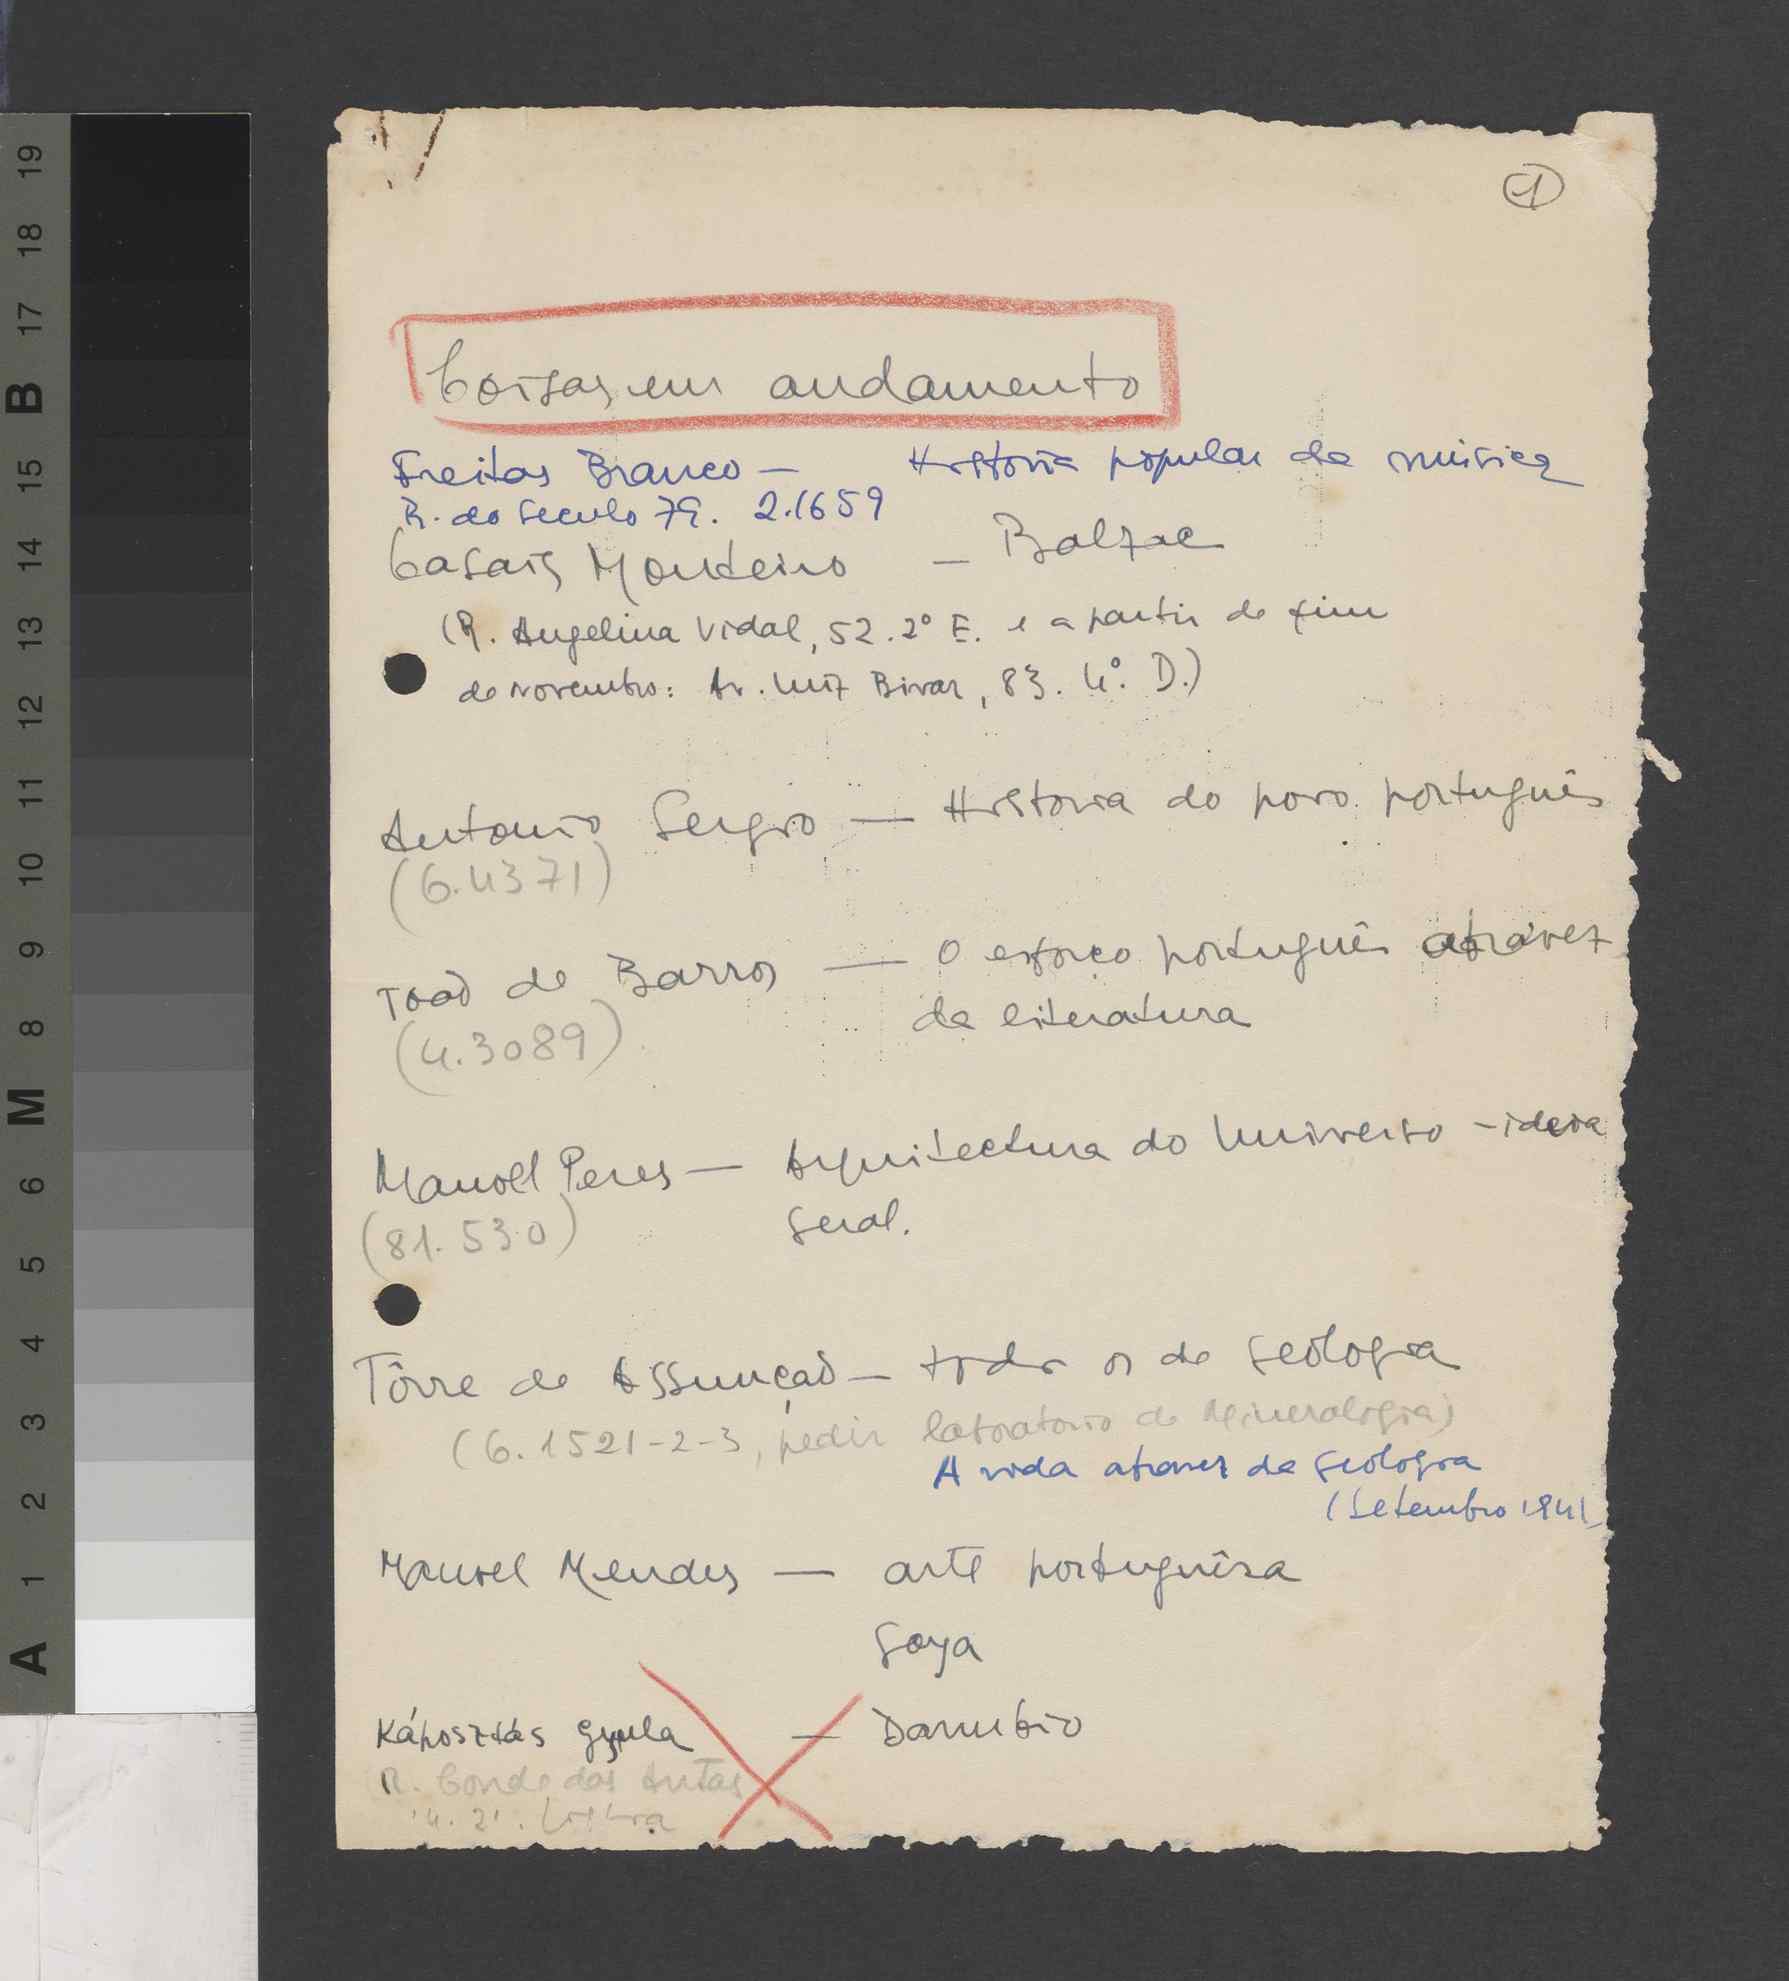 1
Coisas em andamento
Freitas Branco — Historia popular da musica
R. do Seculo 79. 2.1659
Casais Monteiro — Balzac
(R. Angelina Vidal, 52. 2º E. e a partir de fim
de novembro: Av. Luiz Bivar, 83. 4º. D.)
Antonio Sergio — Historia do povo português
(6.4371)
João de Barros — O esforço português atravez
(4.3089)
da literatura
Manoel Peres — Arquitectura do Universo - ideia
geral.
(81.530)
Tôrre de Assunção — todos os de geologia
(6.1521-2-3, pedir laboratorio de Mineralogia)
A vida atravez da geologia
(Setembro 1941
Manoel Mendes — arte portuguêsa
Goya
Káposztás Gyula — Danubio
R. Conde das Antas
A 1 2 3 4 5 6 M 8 9 10 11 12 13 14 15 B 17 18 19